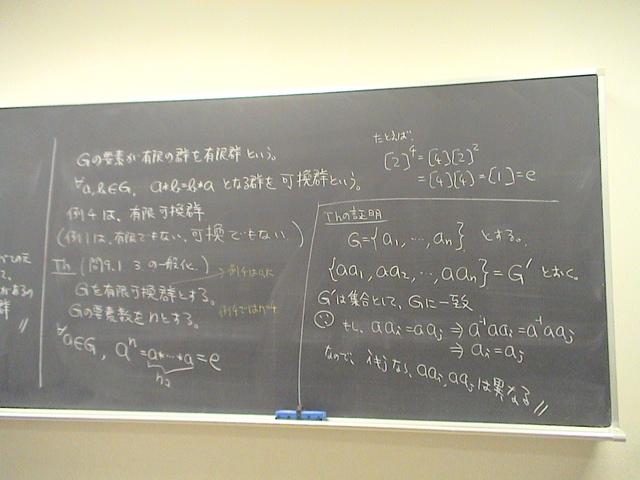 Gの要素が有限の群を有限群という。
∀a,b∈G, a*b=b*a となる群を可換群という。
例4は、有限可換群
(例1は、有限でもない、可換でもない)
Th (問9.1 3 の一般化)
Gを有限可換群とする。
Gの要素数をnとする。
例4ではn=4
∀a∈G, aⁿ=a*…*a=e
たとえば、
[2]⁴=[4][2]²
=[4][4]=[1]=e
Thの証明
G={a₁,…,aₙ} とする。
{aa₁,aa₂,…,aaₙ}=G' とおく。
G'は集合として、Gに一致
もし、aaᵢ=aaⱼ ⇒ a⁻¹aaᵢ=a⁻¹aaⱼ
⇒ aᵢ=aⱼ
なので、i≠jなら、aaᵢ,aaⱼは異なる //